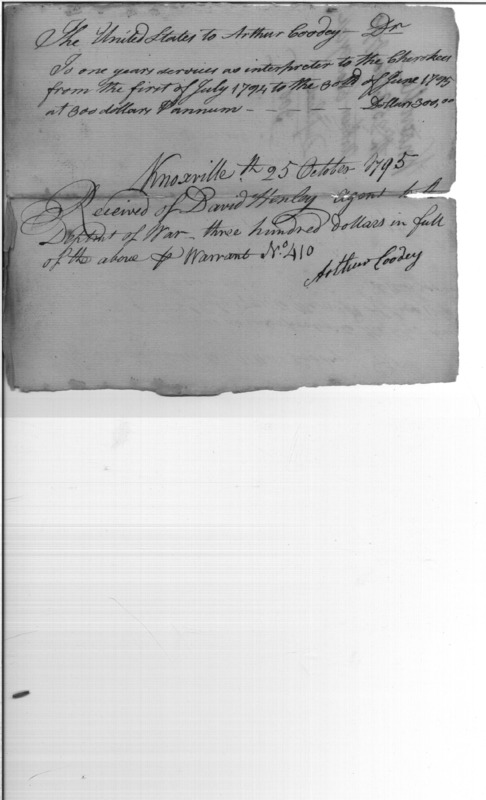 The United States to Arthur Coodey — Dr
To one years services as interpreter to the Cherokees
from the first of July 1794 to the 30th of June 1795
at 300 dollars P annum - - - - Dollars 300,00
Knoxville th 25 October 1795
Received of David Henley agent to the
Deptmt of War - three hundred dollars in full
of the above P Warrant No 410
Arthur Coodey